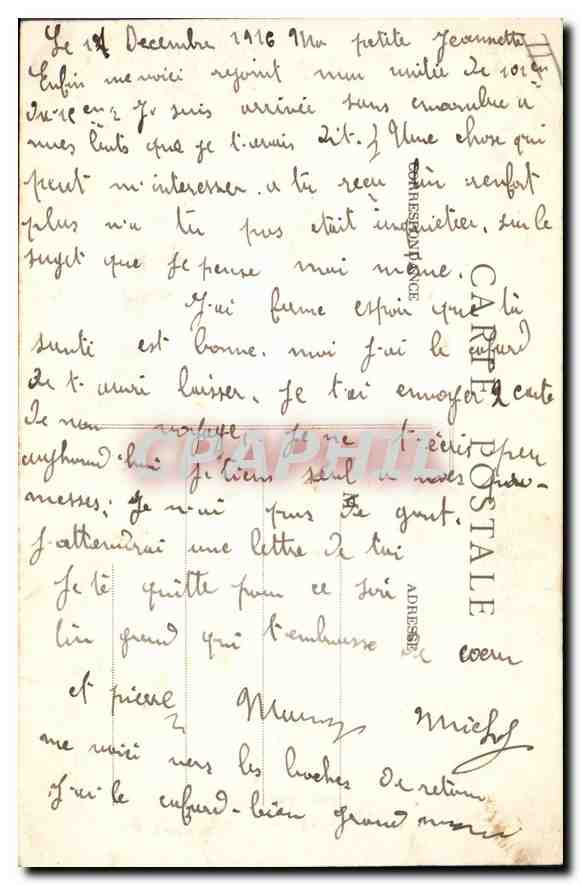 Le Decembre 1916 Ma petite Jeannette
Enfin me voici rejoint mon unitée de
Je suis arrivée sans
que je t'avais dit. Une chose qui
peut m'interesser. a tu reçu renfort
plus n'a tu pas était inquietée. sur le
sujet que je pense moi meme.
J'ai ferme espoir que ta
santé est bonne. moi J'ai le cafard
de t. avoir laisser. Je t'ai envoyer 2 carte
de mon voyage. Je ne t'écris peu
aujhourd-hui Je tiens seul a mes pro-
messes; Je n'ai pas de gout.
J-attendrai une lettre de toi
Je té quitte pour ce soir
Un grand qui t'embrasse de coeur
et pierre
me voici vers les boches de retour
J-ai le cafard-bien grand
CORRESPONDANCE
CARTE POSTALE
M
ADRESSE
CPAPHIL